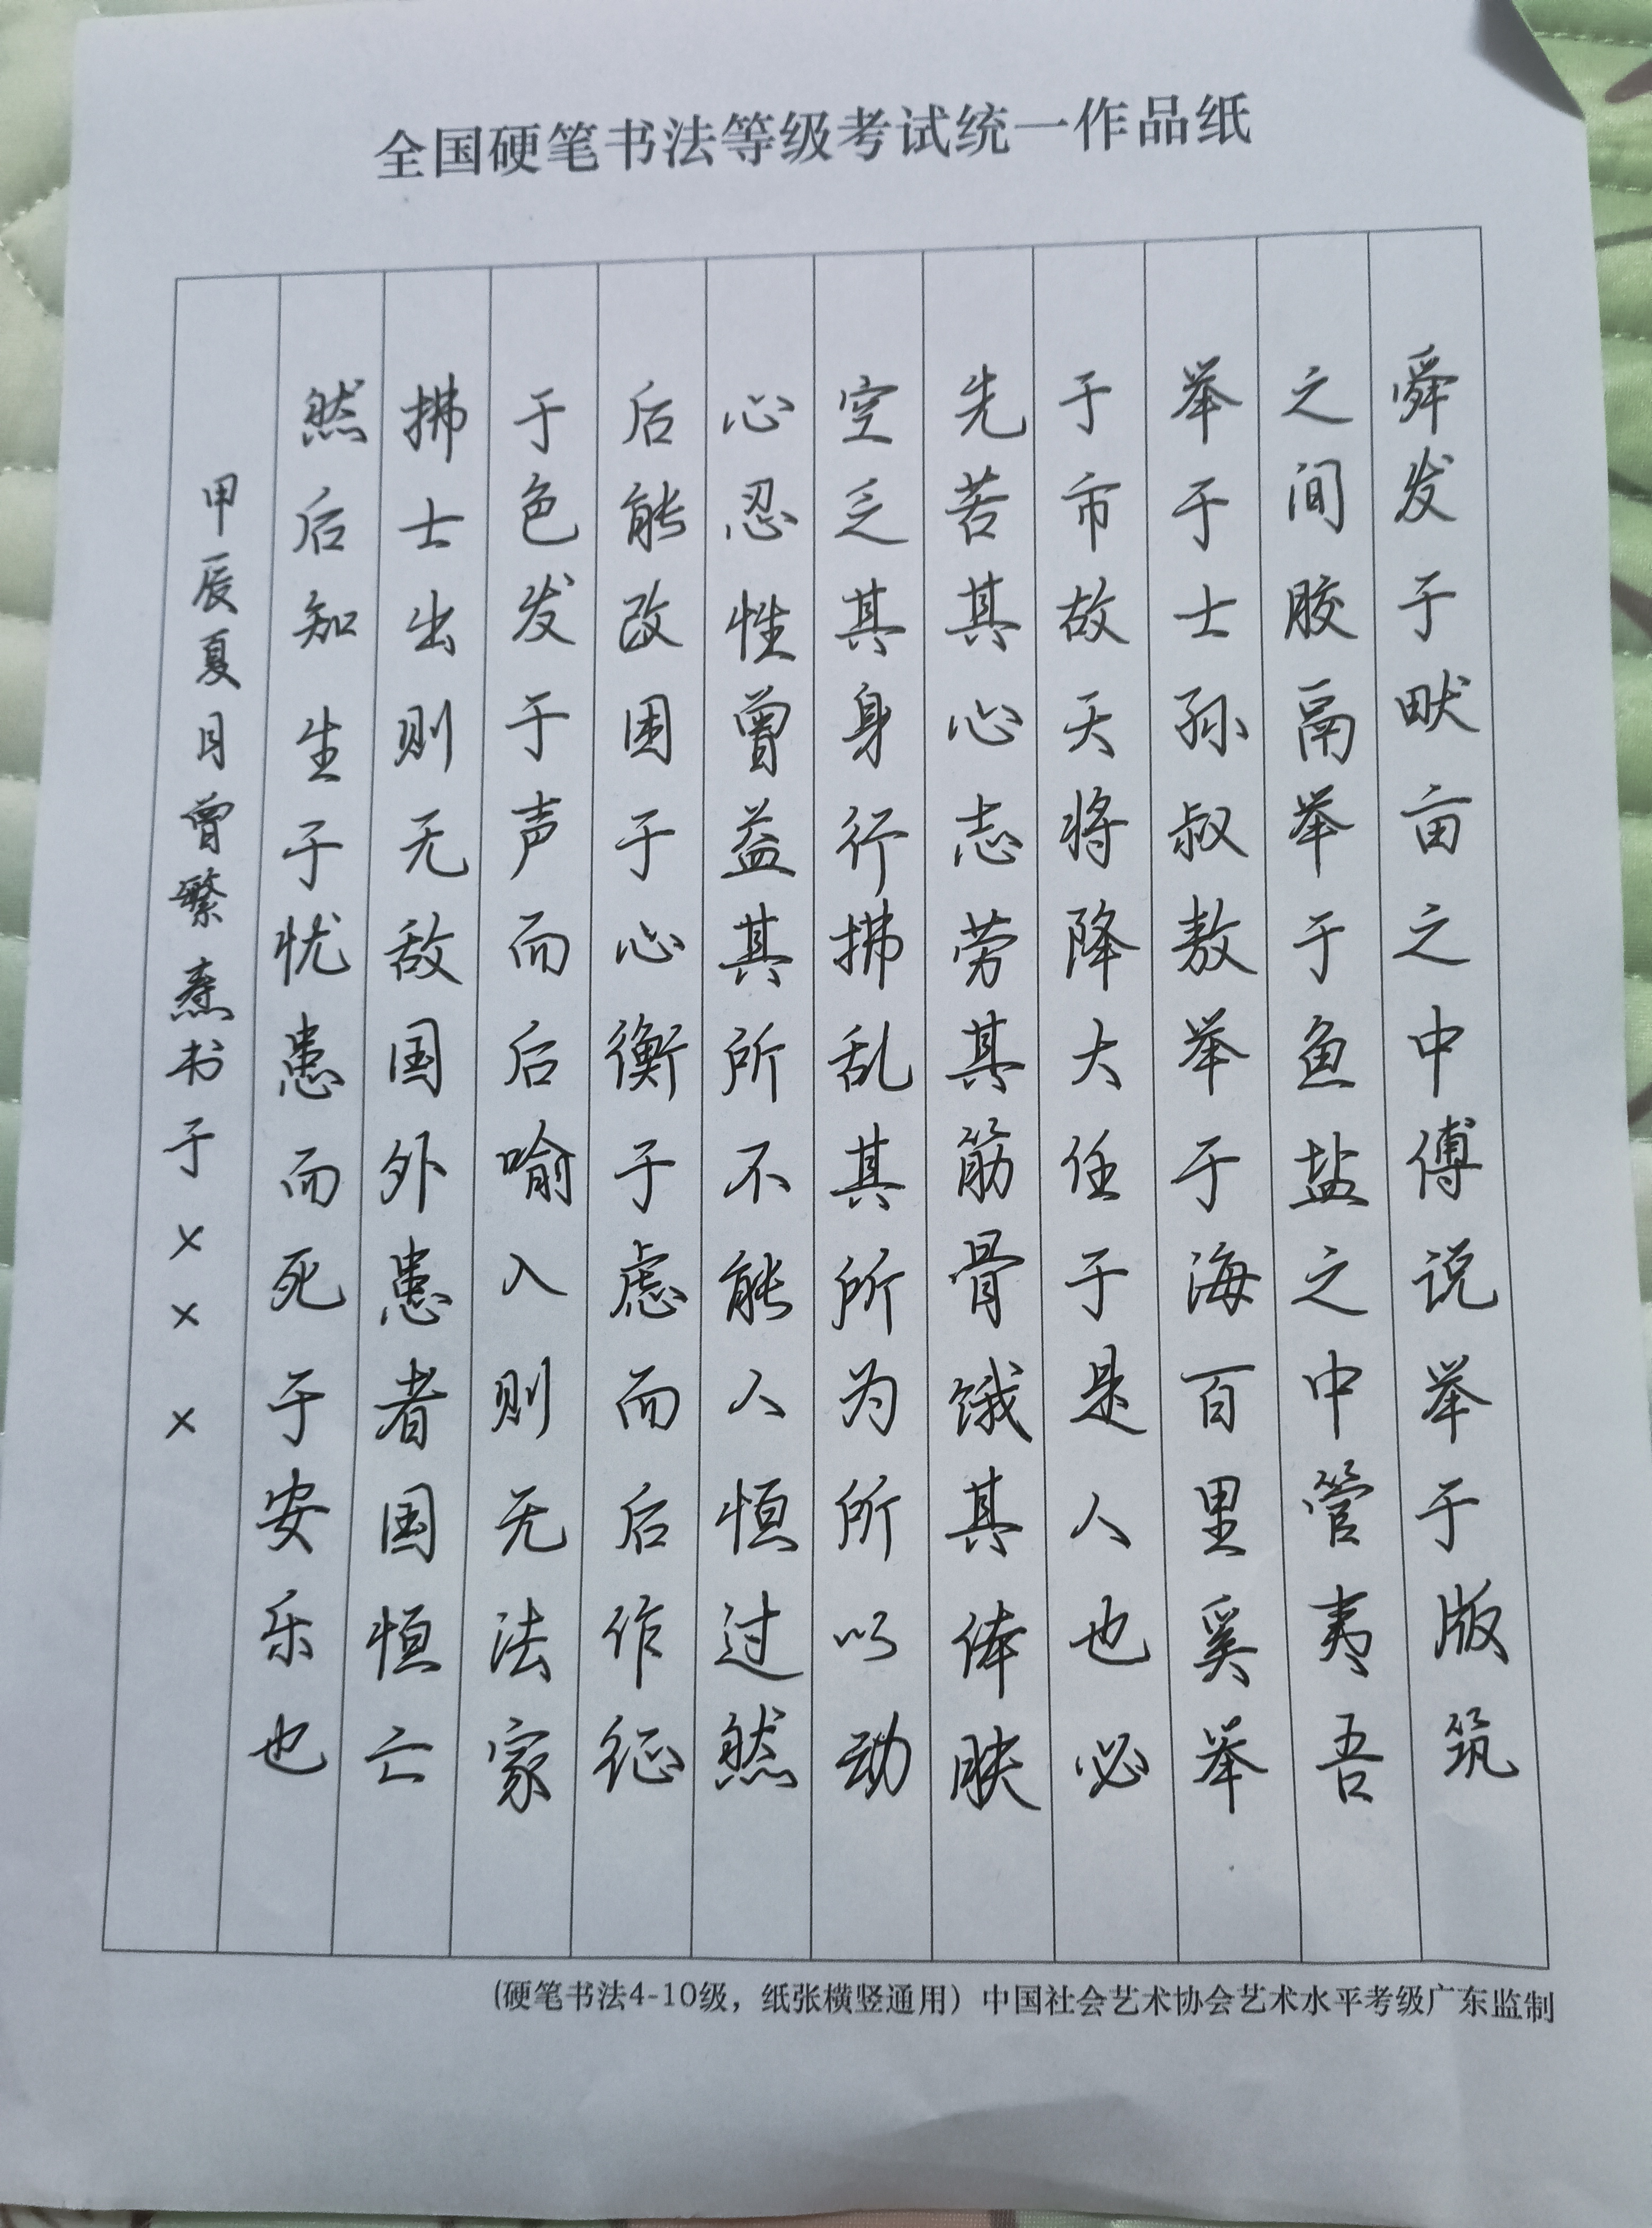 全国硬笔书法等级考试统一作品纸
舜发于畎亩之中傅说举于版筑
之间胶鬲举于鱼盐之中管夷吾
举于士孙叔敖举于海百里奚举
于市故天将降大任于是人也必
先苦其心志劳其筋骨饿其体肤
空乏其身行拂乱其所为所以动
心忍性曾益其所不能人恒过然
后能改困于心衡于虑而后作征
于色发于声而后喻入则无法家
拂士出则无敌国外患者国恒亡
然后知生于忧患而死于安乐也
甲辰夏月曾繁焘书于×××
(硬笔书法4-10级，纸张横竖通用）中国社会艺术协会艺术水平考级广东监制